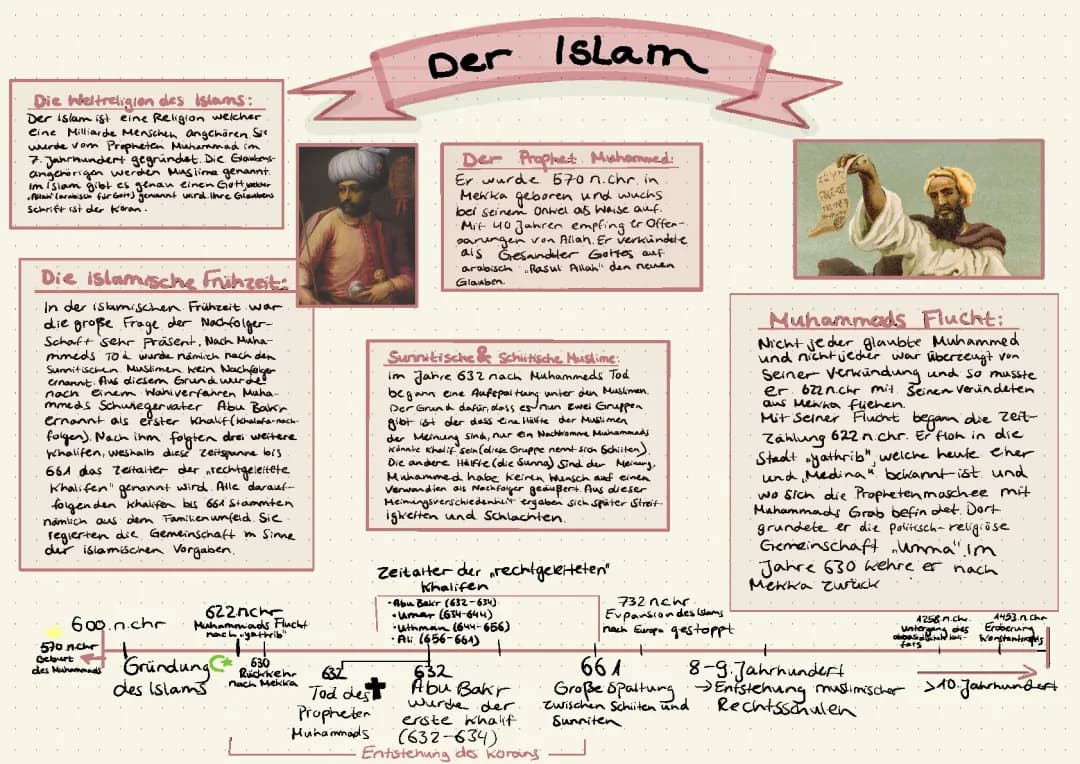 Der Islam
Die Weltreligion des Islams:
Der Islam ist eine Religion welcher
eine Milliarde Menschen angehören. Sie
wurde vom Propheten Muhammad im
7. Jahrhundert gegründet. Die Glaubens-
angehörigen werden Muslime genannt.
Im Islam gibt es genau einen Gott,
"Allah" (arabisch für Gott) genannt wird. Ihre Glaubens
schrift ist der Koran.
Der Prophet Muhammed:
Er wurde 570 n.chr. in
Mekka geboren und wuchs
bei seinem Onkel als Waise auf.
Mit 40 Jahren empfing er Offen-
barungen von Allah. Er verkündete
als Gesandter Gottes auf
arabisch "Rasul Allah" den neuen
Glauben.
Die islamische Frühzeit:
In der islamischen Frühzeit war
die große Frage der Nachfolger-
schaft sehr präsent. Nach Muha-
mmeds Tod wurde nämlich nach den
Sunnitischen Muslimen kein Nachfolger
ernannt. Aus diesem Grund wurde
nach einem Wahlverfahren Muha-
mmeds Schwiegervater Abu Bakr
ernannt als erster Khalif (Khalafa-nach-
folgen). Nach ihm folgten drei weitere
Khalifen, weshalb diese Zeitspanne bis
661 das Zeitalter der "rechtgeleitete
Khalifen" genannt wird. Alle darauf-
folgenden Khalifen bis 661 stammten
nämlich aus dem Familienumfeld. Sie
regierten die Gemeinschaft im Sinne
der islamischen Vorgaben.
Sunnitische & Schiitische Muslime:
im Jahre 632 nach Muhammeds Tod
begann eine Aufspaltung unter den Muslimen.
Der Grund dafür, dass es nun zwei Gruppen
gibt ist der dass eine Hälfte der Muslimen
der Meinung sind, nur ein Nachkomme Muhammeds
könnte Khalif sein (diese Gruppe nennt sich Schiiten).
Die andere Hälfte (die Sunna) sind der Meinung,
Muhammed habe keinen Wunsch auf einen
Verwandten als Nachfolger geäußert. Aus dieser
Meinungsverschiedenheit ergaben sich später Streit-
igkeiten und Schlachten.
Muhammads Flucht:
Nicht jeder glaubte Muhammed
und nicht jeder war überzeugt von
seiner Verkündung und so musste
er 622 n.chr mit seinen Veründeten
aus Mekka fliehen.
Mit seiner Flucht begann die Zeit-
zählung 622 n.chr. Er floh in die
Stadt "yathrib", welche heute eher
und "Medina" bekannt ist und
wo sich die Prophetenmoschee mit
Muhammads Grab befindet. Dort
grundete er die politisch-religiöse
Gemeinschaft "Umma". Im
Jahre 630 kehre er nach
Mekka zurück
Zeitalter der "rechtgeleiteten"
Khalifen
• Abu Bakr (632-634)
• Umar (634-644)
• Uthman (644-656)
• Ali (656-661)
570 n.chr
Geburt
des Muhammads
600.n.chr
Gründung
des Islams
622 n.chr
Muhammads Flucht
nach "yattrib"
630
Rückkehr
nach Mekka
632
Tod des
Propheten
Muhammads
632
Abu Bakr
wurde der
erste Khalif
(632-634)
Entistehung des Korains
661
Große Spaltung
zwischen Schiiten und
Sunniten
732 n.chr.
Expansion des Islams
nach Europa gestoppt
8-9. Jahrhundert
→ Entstehung muslimischer
Rechtsschulen
1258 n.chr.
untergang des
fats
1453 n.chr
Eroberung
Konstantinopels
>10. Jahrhundert